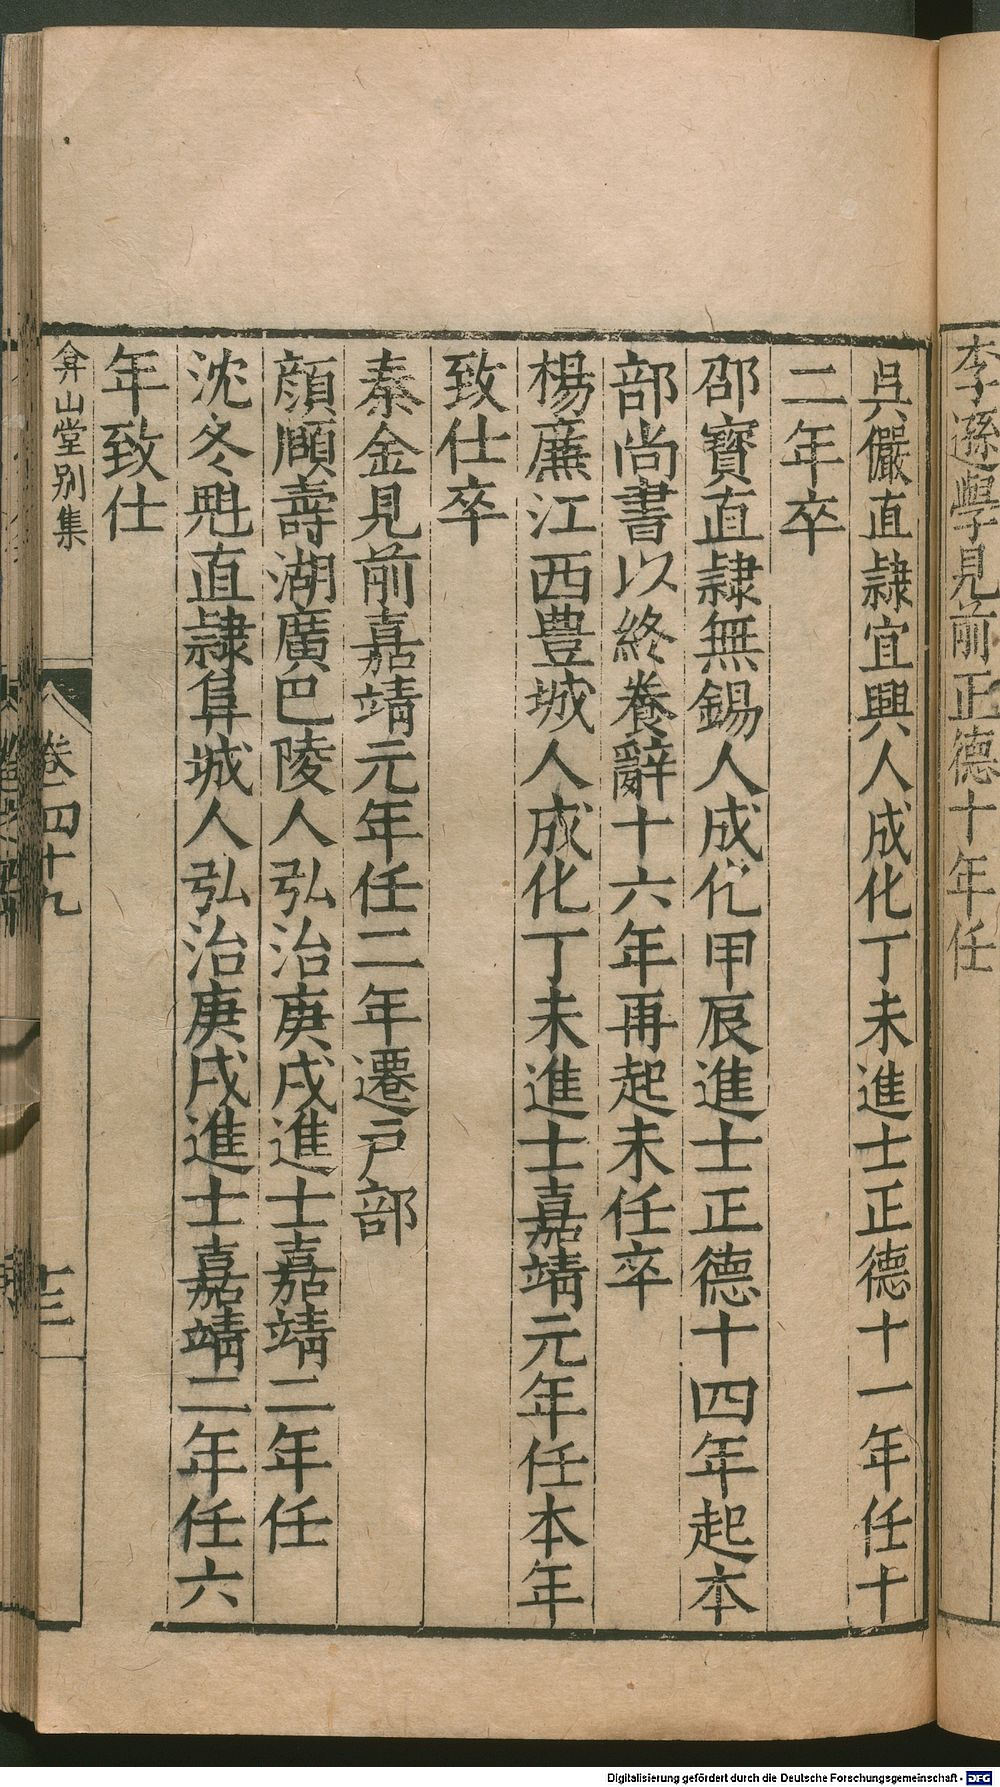 李遜學見前正德十年任
吳儼直隷宜興人成化丁未進士正德十一年任十
二年卒
邵寶直隷無錫人成化甲辰進士正德十四年起本
部尚書以終養辭十六年再起未任卒
楊廉江西豊城人成化丁未進士嘉靖元年任本年
致仕卒
秦金見前嘉靖元年任二年遷戸部
顔頤壽湖廣巴陵人弘治庚戌進士嘉靖二年任
沈冬魁直隷阜城人弘治庚戌進士嘉靖二年任六
年致仕
弇山堂别集
卷四十九
十三
Digitalisierung gefördert durch die Deutsche Forschungsgemeinschaft - DFG